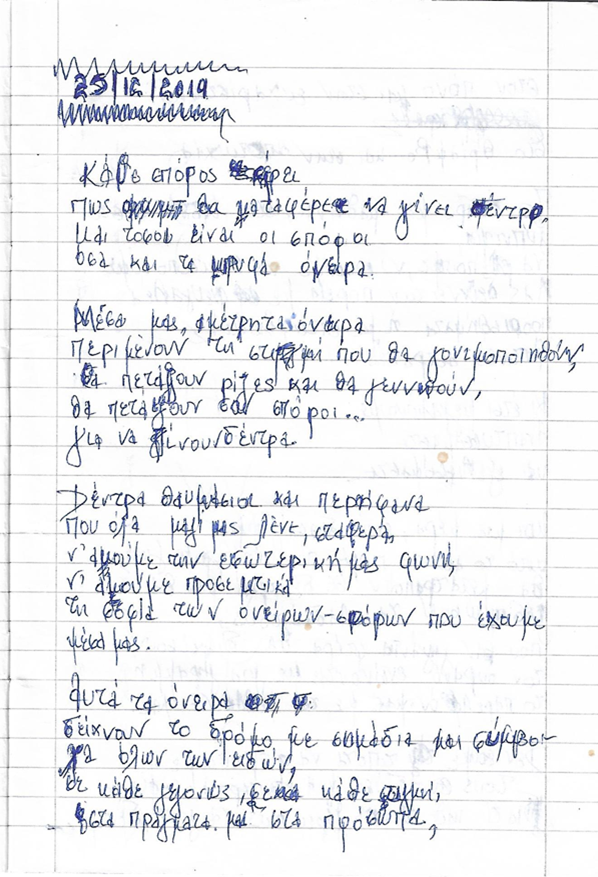 25/12/2019
Κάθε σπόρος ξέρει
πως θα καταφέρει να γίνει δέντρο.
και τόσοι είναι οι σπόροι
όσα και τα κρυφά όνειρα.
Μέσα μας, αμέτρητα όνειρα
περιμένουν τη στιγμή που θα γονιμοποιηθούν,
θα πετάξουν ρίζες και θα γεννηθούν,
θα πετάξουν σαν σπόροι...
για να γίνουν δέντρα.
Δέντρα θαυμάσια και περήφανα
που όλα μαζί μας λένε, σταθερά,
ν' ακούμε την εσωτερική μας φωνή,
ν' ακούμε προσεκτικά
τη σοφία των ονείρων-σπόρων που έχουμε
μέσα μας.
Αυτά τα όνειρα
δείχνουν το δρόμο με σημάδια και σύμβο-
λα όλων των ειδών,
σε κάθε γεγονός, σε κάθε στιγμή,
στα πράγματα και στα πρόσωπα,